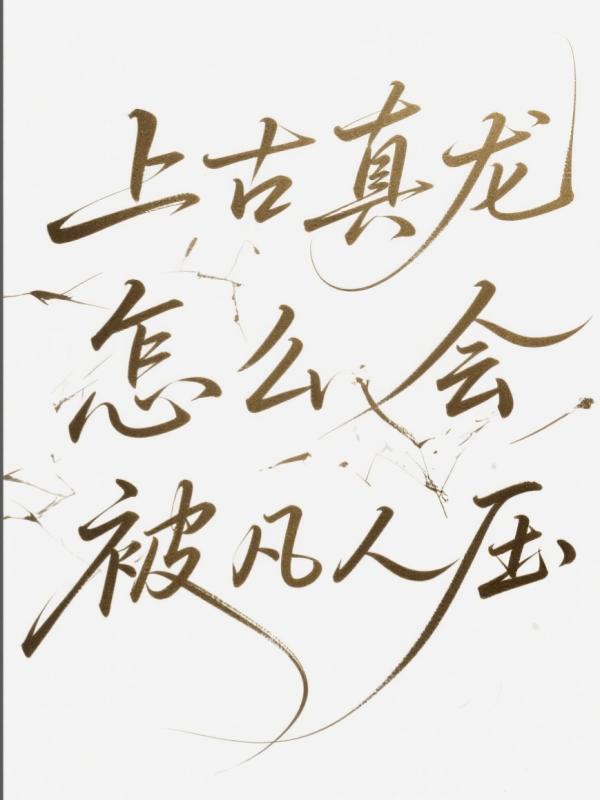 上古真龙
怎么会
被凡人压